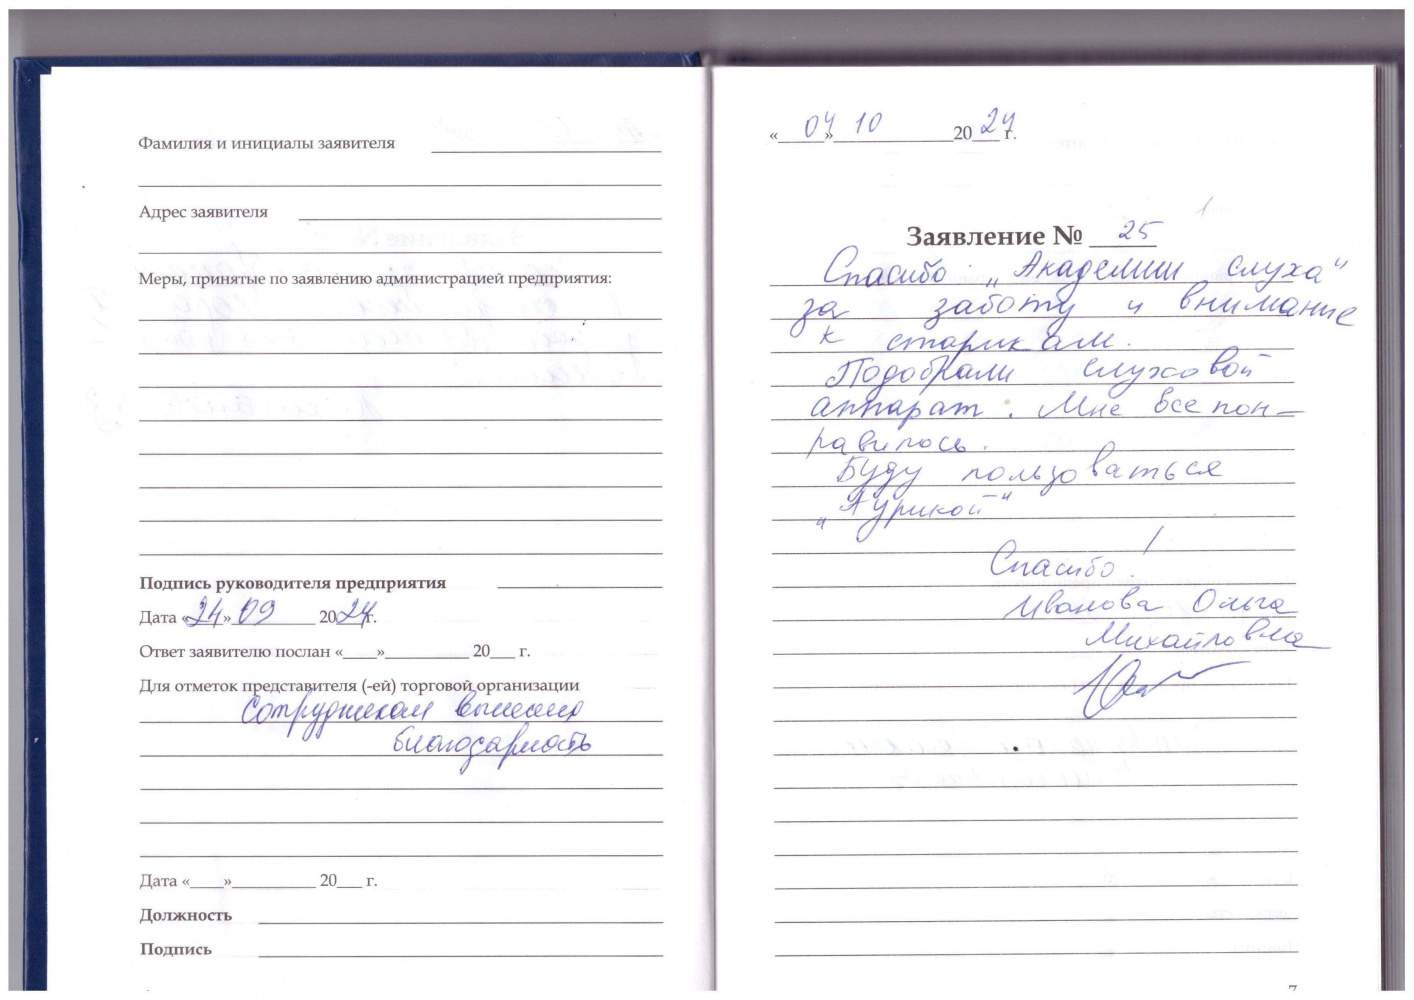 Фамилия и инициалы заявителя
Адрес заявителя
Меры, принятые по заявлению администрацией предприятия:
Подпись руководителя предприятия
Дата «24» 09 2024г.
Ответ заявителю послан «____»__________ 20___ г.
Для отметок представителя (-ей) торговой организации
Сотрудникам вынесена
благодарность
Дата «____»__________ 20___ г.
Должность
Подпись
«04» 10 2024 г.
Заявление № 25
Спасибо „Академии слуха"
за заботу и внимание
к старикам.
Подобрали слуховой
аппарат. Мне все пон-
равилось.
Буду пользоваться
„Аурикой"
Спасибо!
Иванова Ольга
Михайловна
7